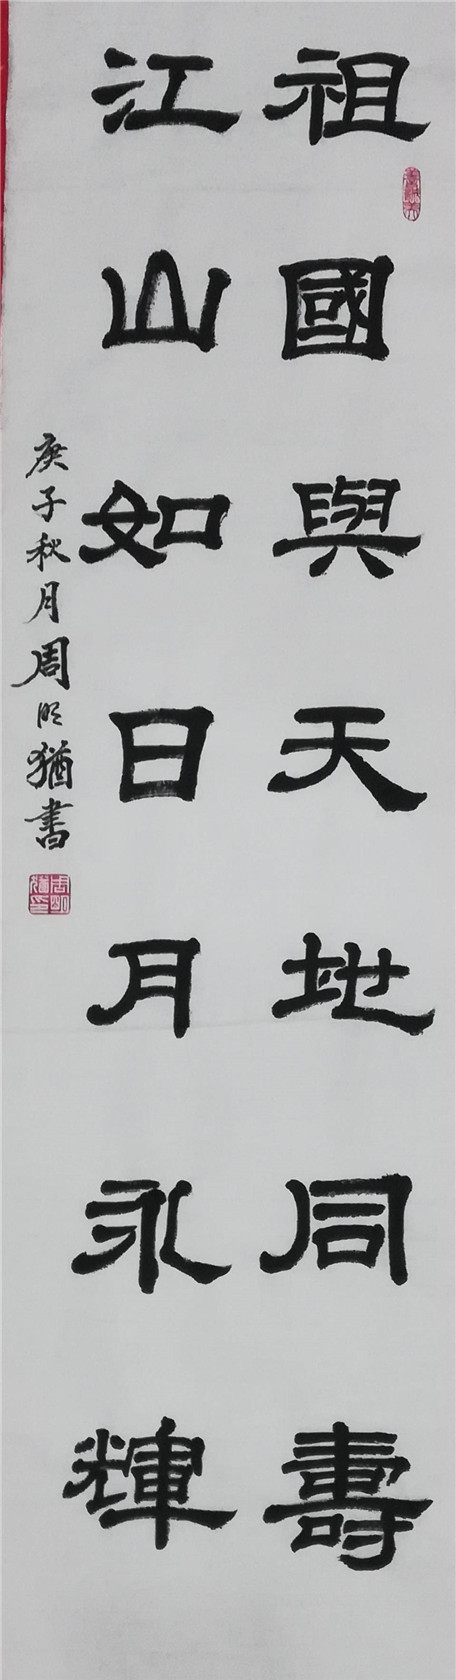 祖國與天地同壽
江山如日月永輝
庚子秋月周明猶書